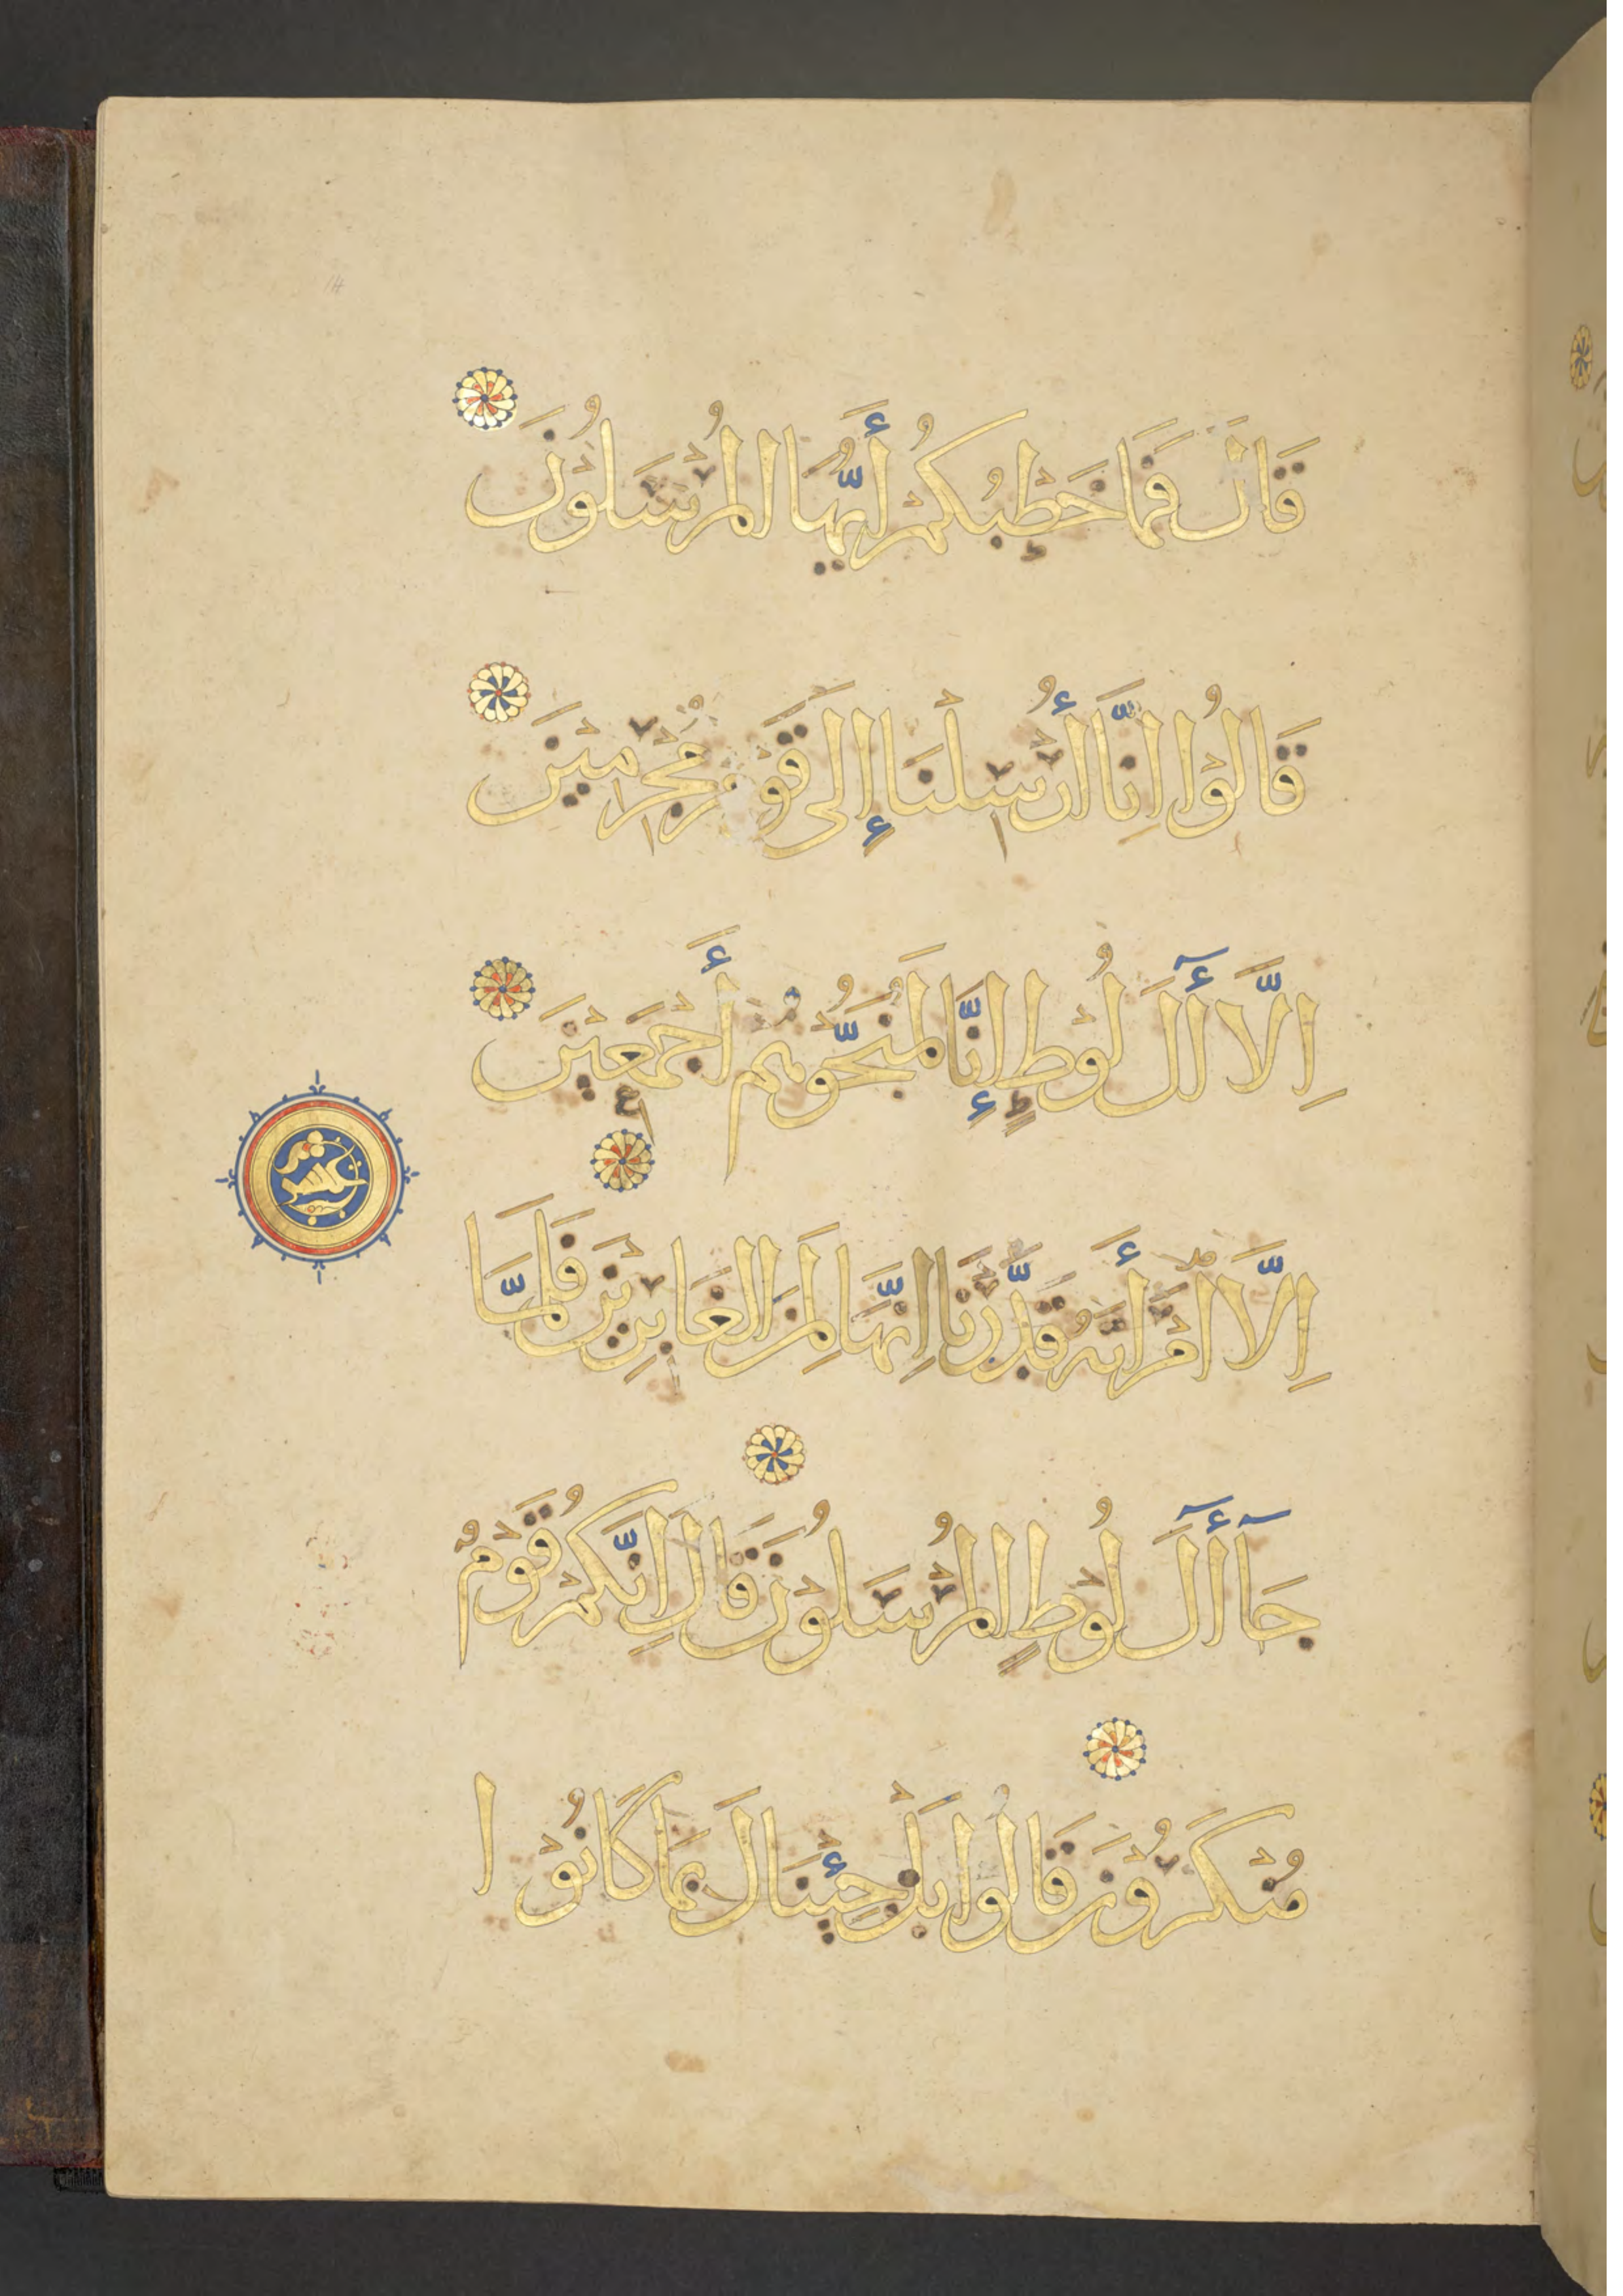 قَالَ فَمَا خَطْبُكُمْ أَيُّهَا الْمُرْسَلُوْنَ
قَالُوْا اِنَّا أُرْسِلْنَا إِلَى قَوْمٍ مُجْرِمِيْنَ
اِلَّا أٓلَ لُوْطٍ إِنَّا لَمُنَجُّوْهُمْ أَجْمَعِيْنَ
اِلَّا امْرَأَتَهُ قَدَّرْنَا اِنَّهَا لَمِنَ الْغَابِرِيْنَ فَلَمَّا
جَآ أٓلَ لُوْطٍ الْمُرْسَلُوْنَ قَالَ اِنَّكُمْ قَوْمٌ
مُنْكَرُوْنَ قَالُوا بَلْ جِئْنَاكَ بِمَا كَانُوْا